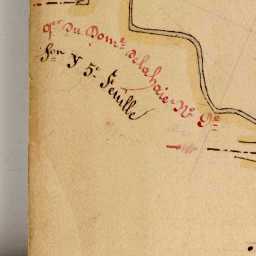 Du Dom.e Delahaie N.e D.e
Son Y 5.e feuille